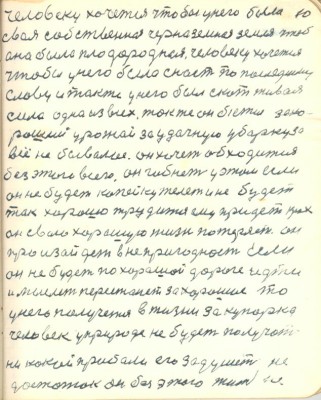 человеку хочется чтобы у него была 10
своя собственная черноземная земля чтоб
она была плодородная, человеку хочется
чтобы у него было снасть по последнему
слову и также у него был скот живая
сила одна из всех, то кто он бьется за хо-
роший урожай за удачную уборку за
всё не бывалое. он хочет обходится
без этого всего, он гибнет у этом если
он не будет копейку телет и не будет
так хорошо трудится ему придет крах
он свою хорошую жизнь потеряет. он
произайдет в непригодность если
он не будет по хорошой дороге идти
и мыслит перестанет за хорошие то
у него получения в жизни закупорка
человек у природе не будет получать
ни какой прибали его задушит не
достаток он без этого жит ся